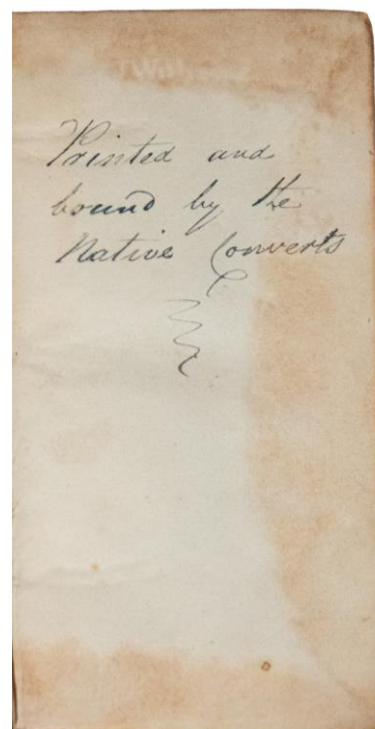 Printed and
bound by the
Native Converts